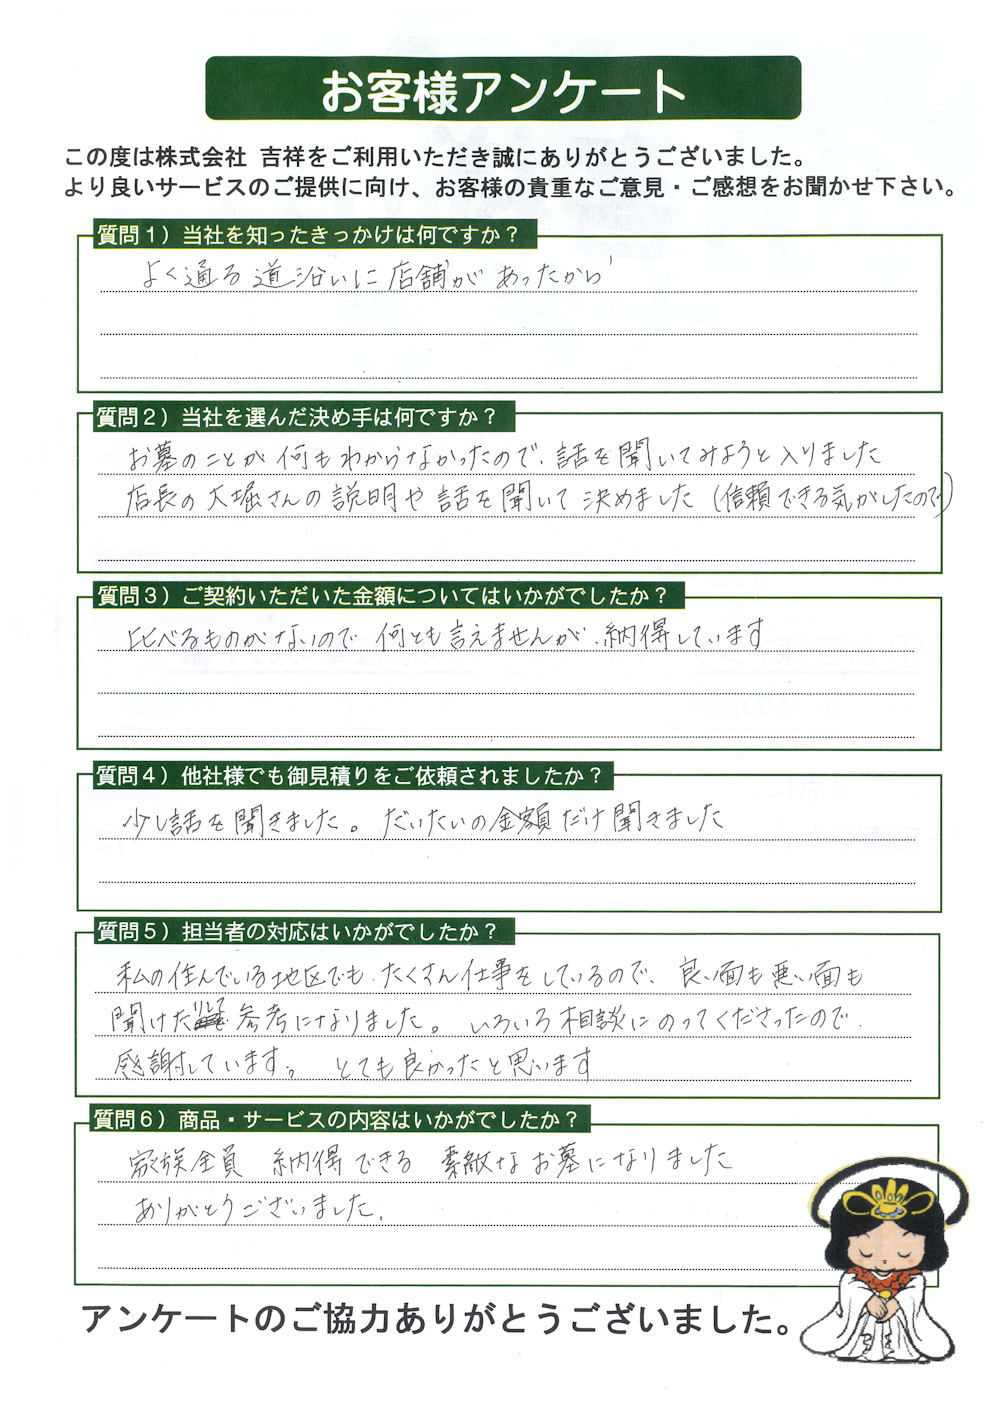 お客様アンケート
この度は株式会社 吉祥をご利用いただき誠にありがとうございました。
より良いサービスのご提供に向け、お客様の貴重なご意見・ご感想をお聞かせ下さい。
質問１）当社を知ったきっかけは何ですか？
よく通る道沿いに店舗があったから
質問２）当社を選んだ決め手は何ですか？
お墓のことが何もわからなかったので、話を聞いてみようと入りました
店長の大堀さんの説明や話を聞いて決めました（信頼できる気がしたので）
質問３）ご契約いただいた金額についてはいかがでしたか？
比べるものがないので何とも言えませんが、納得しています
質問４）他社様でも御見積りをご依頼されましたか？
少し話を聞きました。だいたいの金額だけ聞きました
質問５）担当者の対応はいかがでしたか？
私の住んでいる地区でも、たくさん仕事をしているので、良い面も悪い面も
聞けたりして参考になりました。いろいろ相談にのってくださったので、
感謝しています。とても良かったと思います
質問６）商品・サービスの内容はいかがでしたか？
家族全員 納得できる 素敵なお墓になりました
ありがとうございました。
アンケートのご協力ありがとうございました。